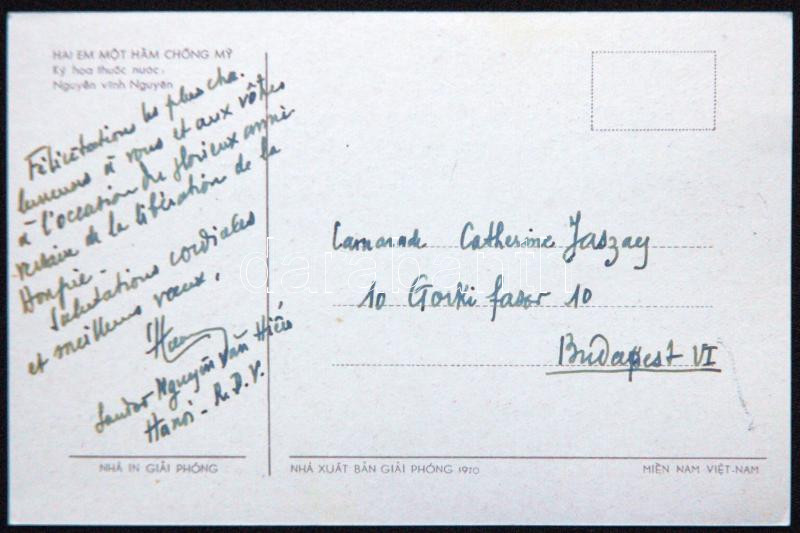 HAI EM MỘT HẦM CHỐNG MỸ
Ký họa thuốc nước:
Nguyễn vĩnh Nguyên
Félicitations les plus cha-
leureuses à vous et aux vôtres
à l'occasion du glorieux anni
versaire de la libération de la
Hongrie -
Salutations cordiales
et meilleurs voeux.
Sandor Nguyễn Văn Hiếu
Hanoi - R.D.V.
Camarade Catherine Jaszay
10 Gorki fasor 10
Budapest VI
NHÀ IN GIẢI PHÓNG
NHÀ XUẤT BẢN GIẢI PHÓNG 1970
MIỀN NAM VIỆT-NAM
darabanth